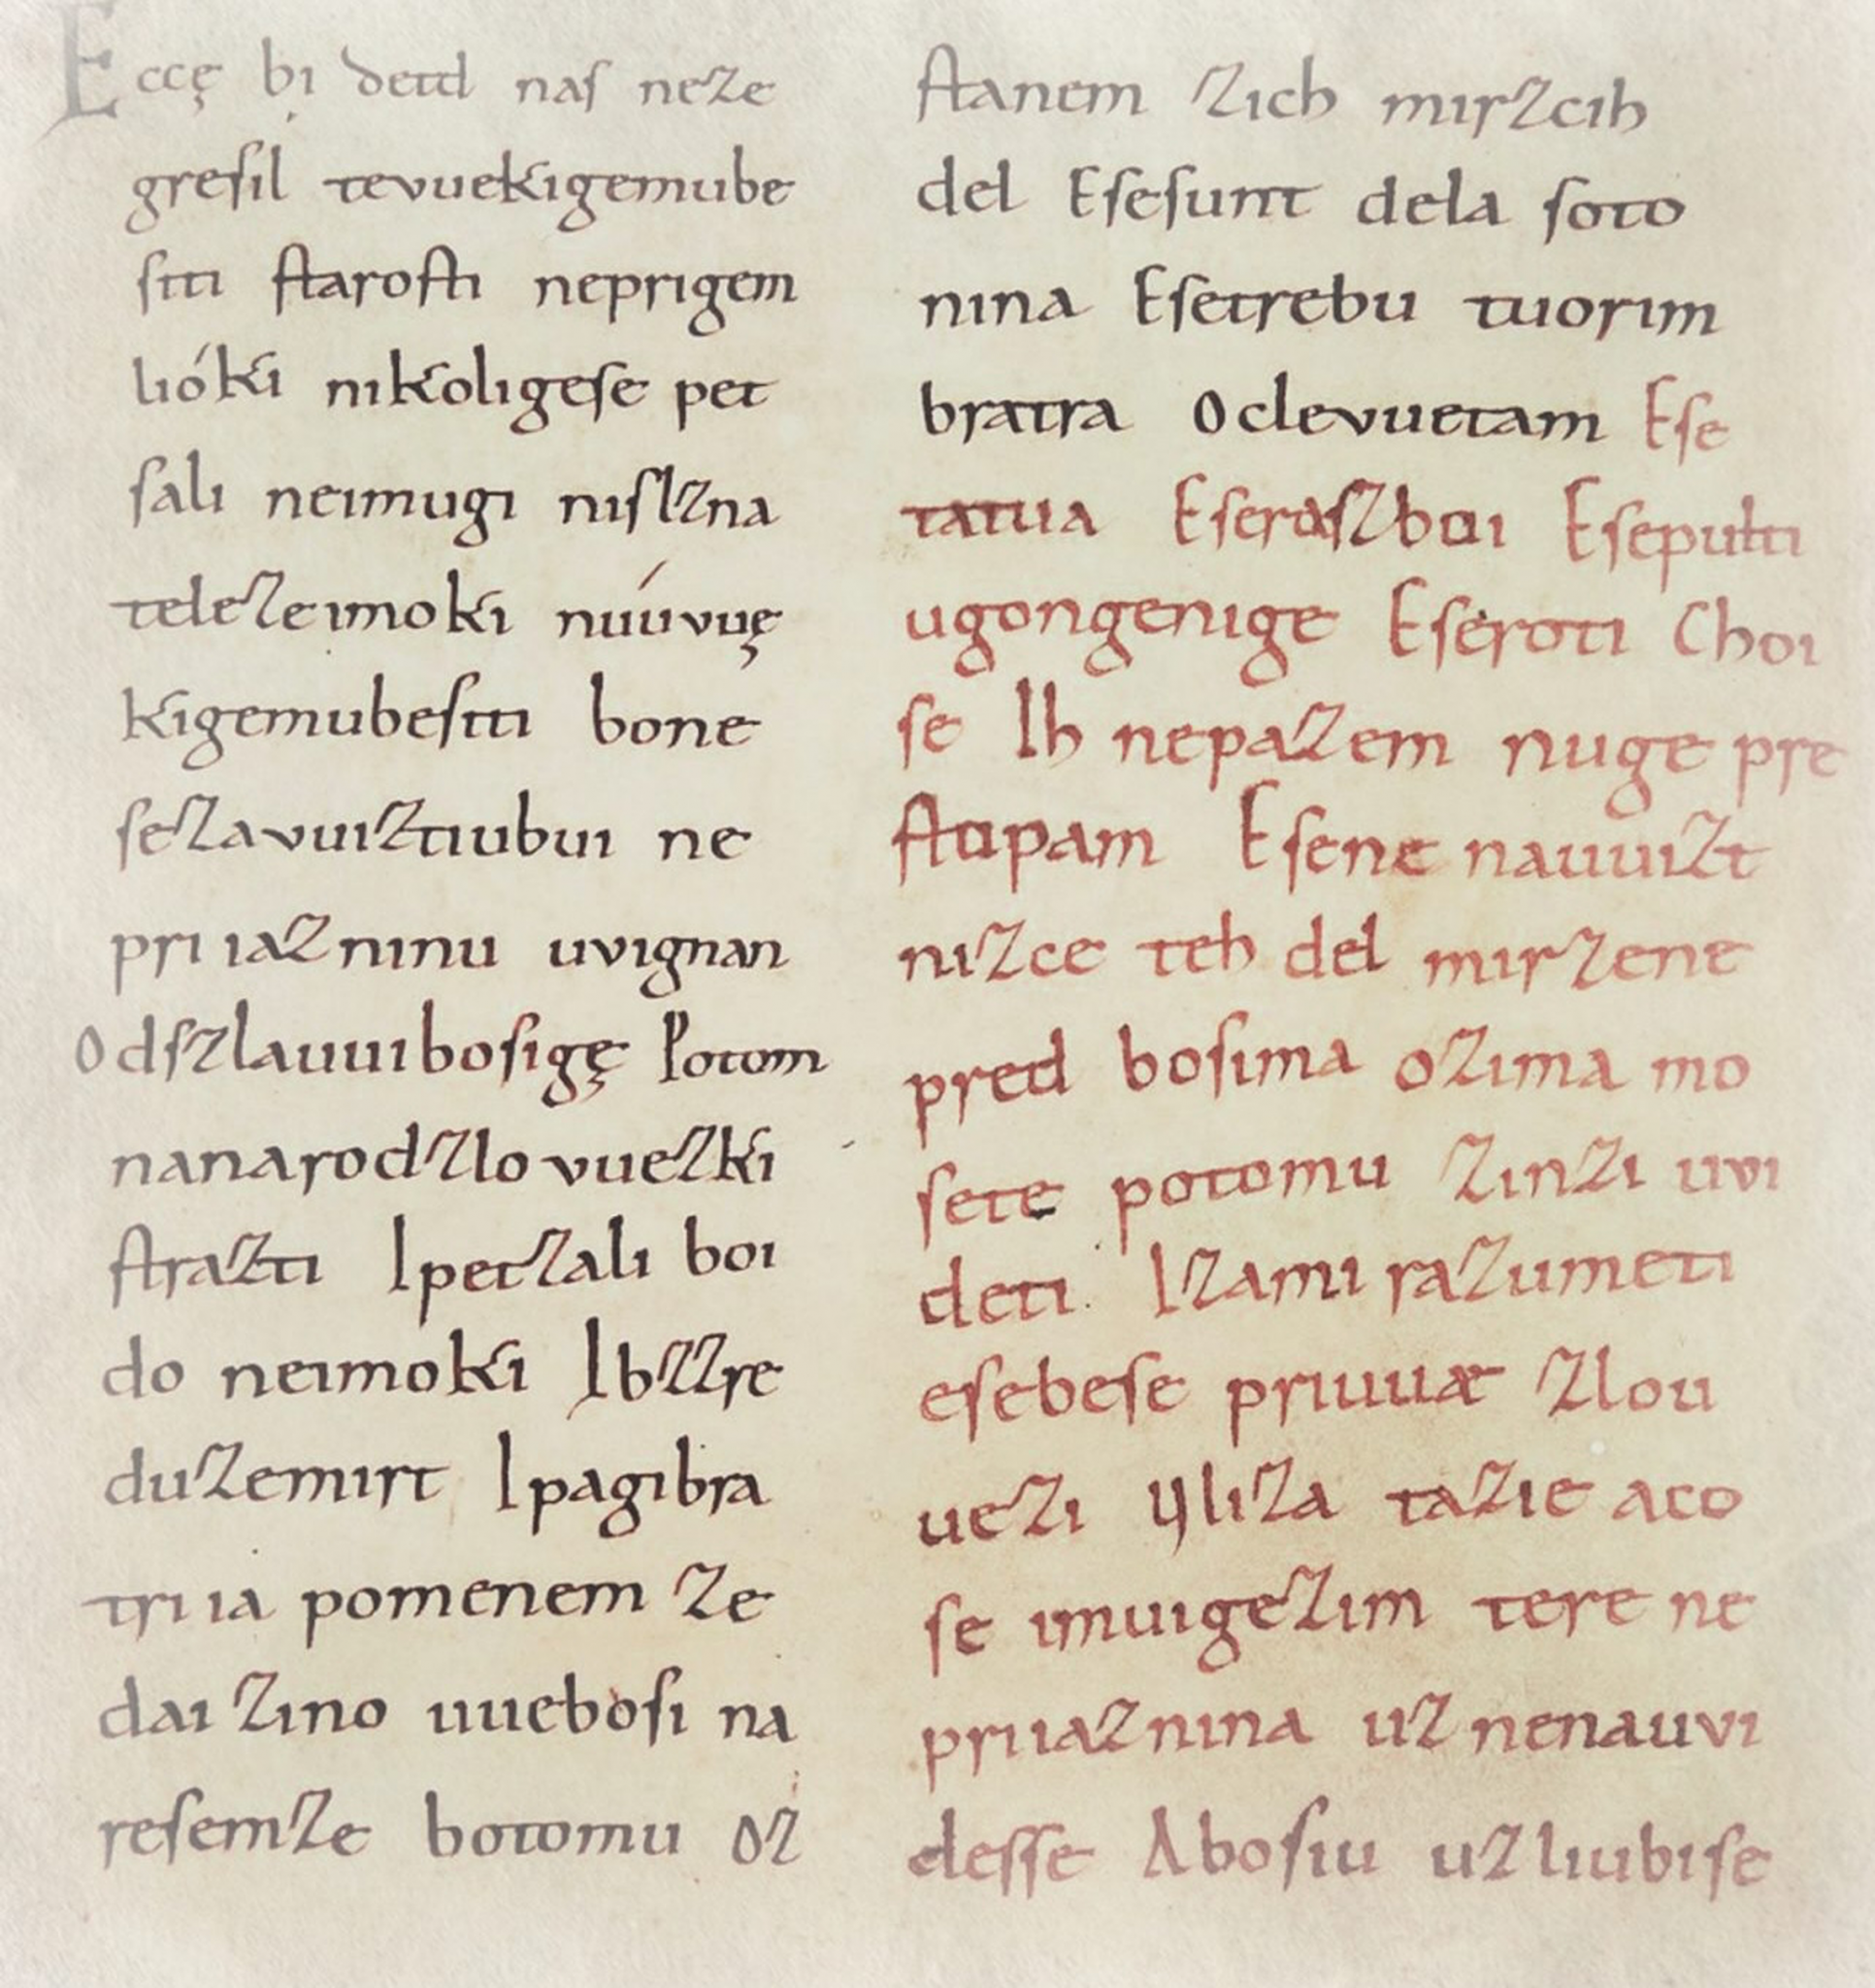 Eccę bi detd naſ neze
greſil tevuekigemube
ſiti ſtaroſti neprigem
lióki nikoligeſe pet
ſali neimugi niſlzna
telezeimoki nuúvuę
kigemubeſiti bone
ſezavuiztiubui ne
priiazninu uvignan
Odſzlauuiboſigę Potom
nanarodzlovuezki
ſtrazti Ipetzali boi
do neimoki Ibzzre
duzemirt Ipagibra
triia pomenem ze
dai zino uueboſi na
reſemze botomu oz
ſtanem zich mirzcih
del Eſeſunt dela ſoto
nina Eſetrebu tuorim
bratra Oclevuetam Eſe
tatua Eſeraſzboi Eſepulti
ugongenige Eſeroti Choi
ſe Ih nepazem nuge pre
ſtopam Eſene nauuizt
nizce teh del mirzene
pred boſima ozima mo
ſete potomu zinzi uvi
deti. Izami razumeti
eſebeſe priuuæ zlou
uezi Yliza tazie aco
ſe imuigezim tere ne
priiaznina uz nenauvi
deſſe Aboſiu uzliubiſe